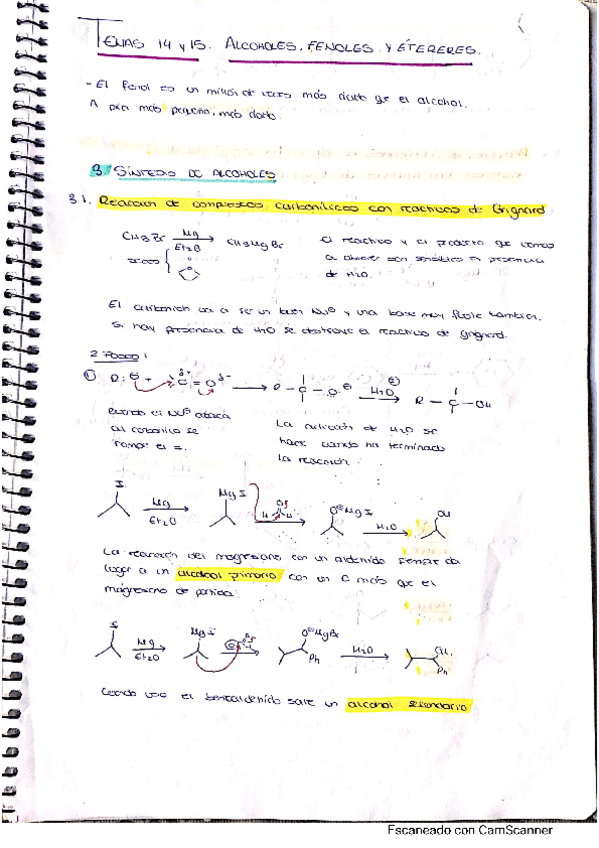 TEMAS 14 Y 15. ALCOHOLES, FENOLES Y ÉTERERES.
- El fenol es un millón de veces más ácido que el alcohol.
A pKa más pequeño, más ácido.
3. SÍNTESIS DE ALCOHOLES
3.1. Reacción de compuestos carbonílicos con reactivos de Grignard
CH3Br Mg Et2O CH3MgBr
El reactivo y el producto que vamos
a obtener son sensibles en presencia
de H2O.
El carbanión va a ser un buen Nu⊖ y una base muy fuerte también.
Si hay presencia de H2O se destruye el reactivo de Grignard.
2 Pasos:
① R:⊖ + C=O δ+ δ- R-C-O⊖ ② H2O R-C-OH
cuando el Nu⊖ ataca
al carbonilo se
rompe el =.
La adición de H2O se
hace cuando ha terminado
la reacción.
I Mg Et2O MgI O H H O⊖MgI H2O OH
La reacción del magresiano con un aldehído siempre da
lugar a un alcohol primario con un C más que el
magresiano de partida.
I Mg Et2O MgI O⊖MgBr Ph H2O OH Ph
Cuando uso el benzaldehído sale un alcohol secundario
Escaneado con CamScanner